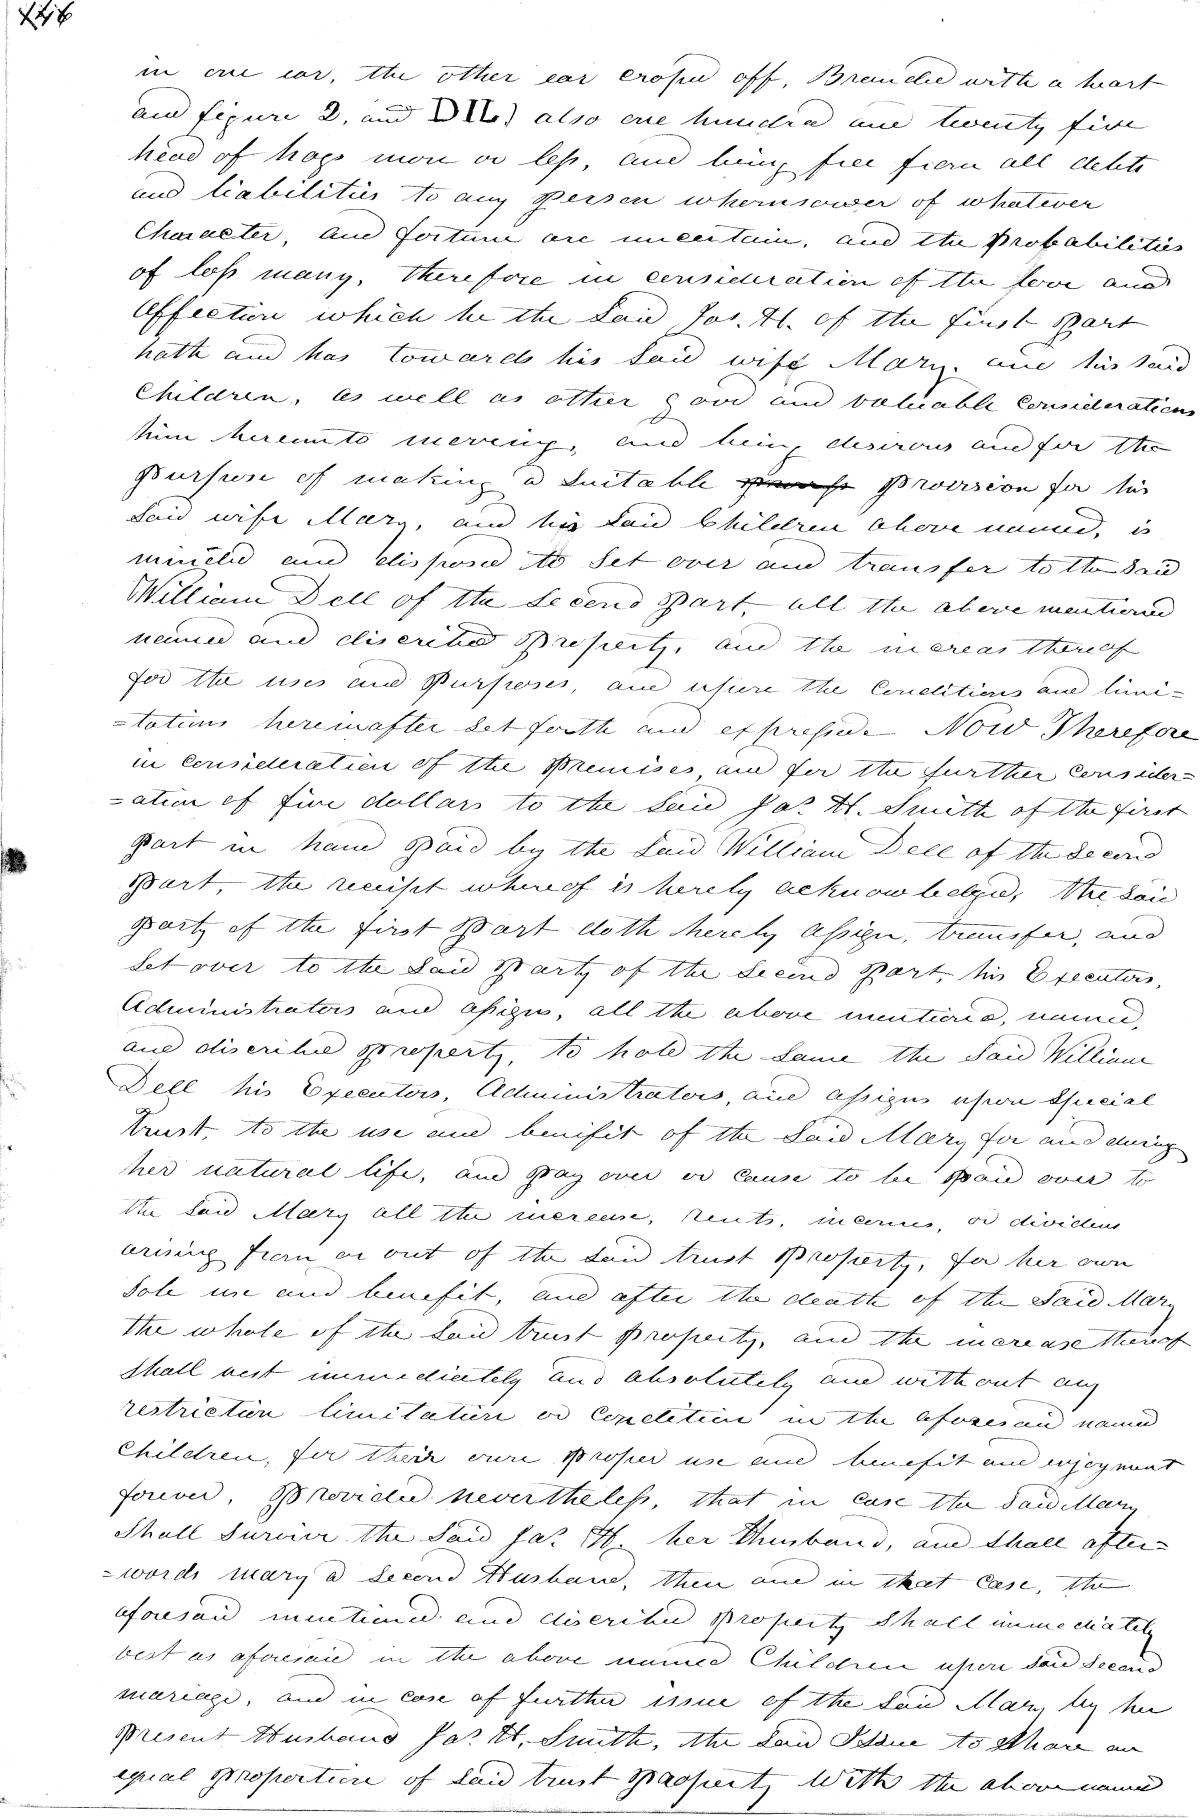 446
in one ear, the other ear cropd off, Branded with a heart
and figure 2, and DIL) also one hundred and twenty five
head of hogs more or less, and being free from all debts
and liabilities to any person whomsoever of whatever
Character, and fortune are uncertain, and the Probabilities
of loss many, therefore in consideration of the love and
affection which he the Said Jas. H. of the first part
hath and has towards his Said wife Mary, and his Said
Children, as well as other good and valuable Considerations
him hereunto moveing, and being desirous and for the
purpose of making a Suitable provision for his
Said wife Mary, and his Said Children above named, is
minded and disposed to Set over and transfer to the Said
William Dell of the Second Part, all the above mentioned
named and discribed Property, and the increas thereof
for the uses and Purposes, and upon the Conditions and limi=
=tations hereinafter Set forth and expressed Now Therefore
in consideration of the Premises, and for the further Consider=
=ation of five dollars to the Said Jas. H. Smith of the first
Part in hand Paid by the Said William Dell of the Second
Part, the receipt whereof is hereby acknowledged, the Said
Party of the first Part doth hereby assign, transfer, and
Set over to the Said Party of the Second Part, his Executors,
Administrators and assigns, all the above mentioned, named,
and discribed Property, to hold the Same the Said William
Dell his Executors, Administrators, and assigns upon Special
Trust, to the use and benifit of the Said Mary for and during
her natural life, and Pay over or cause to be Paid over to
the Said Mary all the increase, rents, incomes, or dividens
arising from or out of the Said trust Property, for her own
Sole use and benefit, and after the death of the Said Mary
the whole of the Said trust Property, and the increase thereof
Shall vest immediately and absolutely and without any
restriction limitation or Condition in the aforesaid named
Children, for their own Proper use and benefit and enjoyment
forever, Provided nevertheless, that in case the Said Mary
Shall Survive the Said Jas. H. her Husband, and Shall after=
=words mary a Second Husband, then and in that Case, the
aforesaid mentioned and discribed Property Shall immediately
vest as aforesaid in the above named Children upon Said Second
mariage, and in case of further issue of the Said Mary by her
Present Husband Jas. H. Smith, the Said Issue to Share an
equal Proportion of Said trust Property With the above named